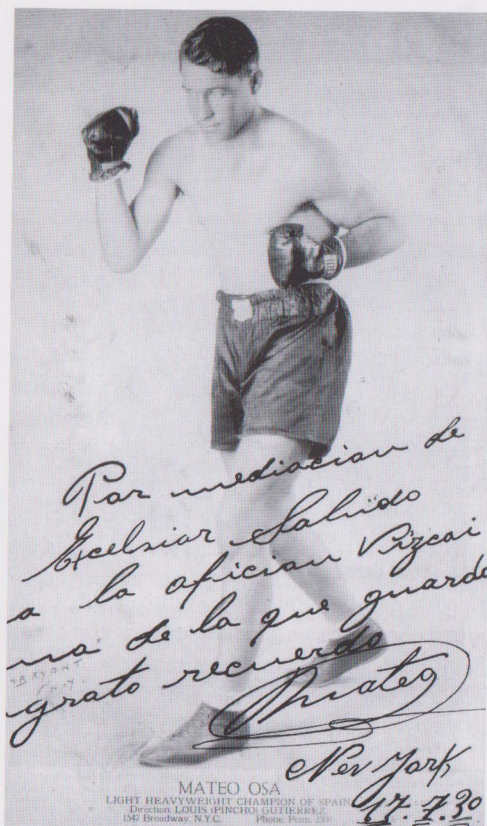 Por mediacion de
Excelsior Saludo
a la aficion Vizcai
na de la que guarde
grato recuerdo
Mateo
New York
17. 7. 30
MATEO OSA
LIGHT HEAVYWEIGHT CHAMPION OF SPAIN
Direction LOUIS (PINCHO) GUTIERREZ
1547 Broadway N.Y.C. Phone Penn.